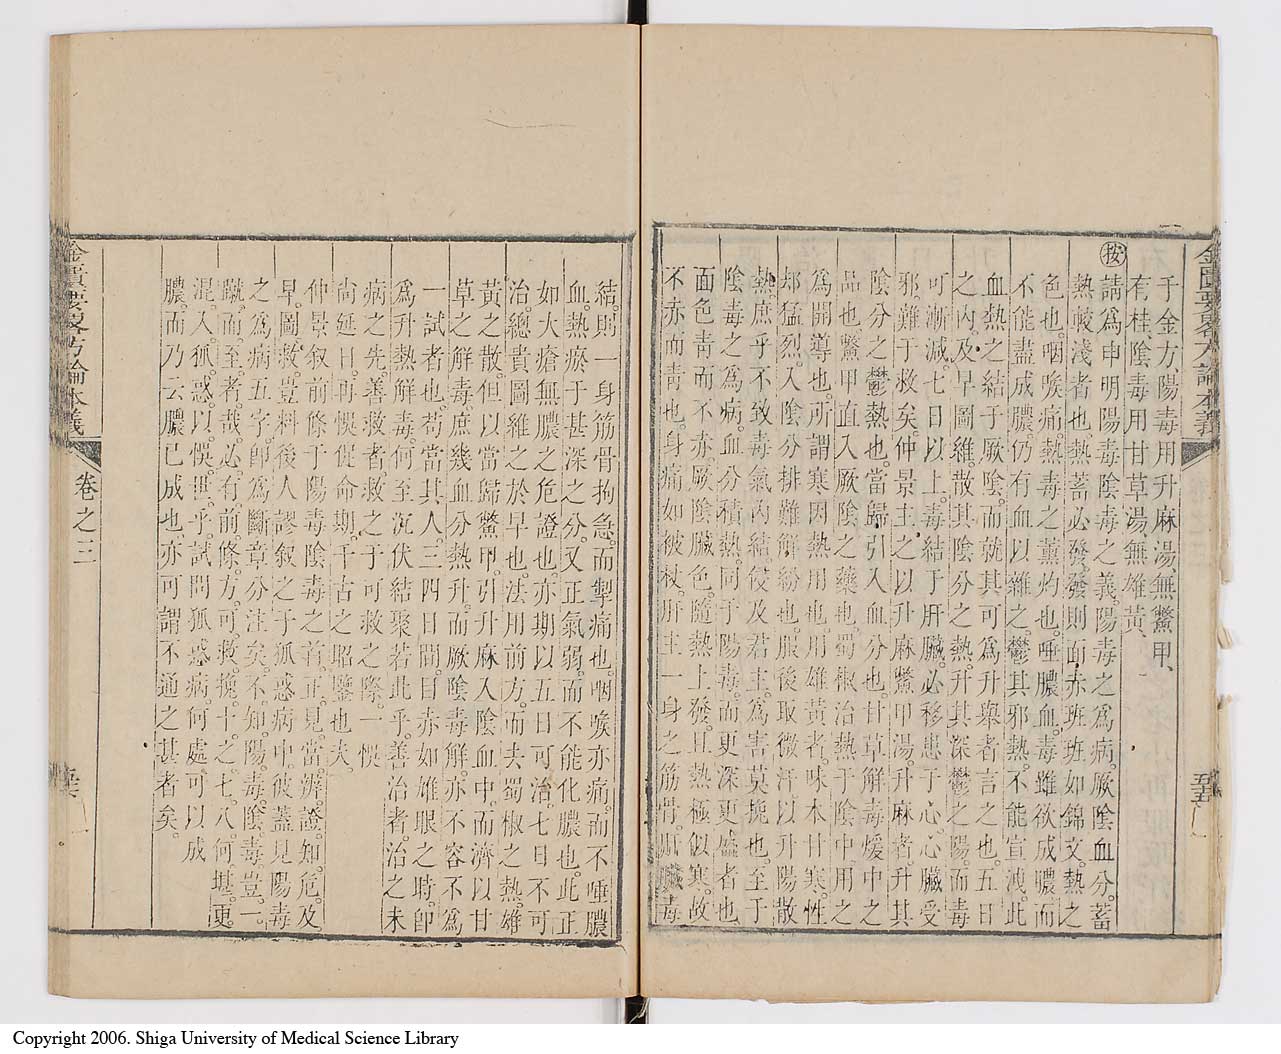 金匱要畧方論本義
五十五
千金方陽毒用升麻湯無鱉甲
有桂陰毒用甘草湯無雄黃
按請為申明陽毒陰毒之義陽毒之為病厥陰血分蓄
熱較淺者也熱蓄必發發則面赤班班如錦文熱之
色也咽喉痛熱毒之薰灼也唾膿血毒雖欲成膿而
不能盡成膿仍有血以雜之鬱其邪熱不能宣洩此
血熱之結于厥陰而就其可為升舉者言之也五日
之內及早圖維散其陰分之熱升其深鬱之陽而毒
可漸減七日以上毒結于肝臟必移患于心心臟受
邪難于救矣仲景主之以升麻鱉甲湯升麻者升其
陰分之鬱熱也當歸引入血分也甘草解毒煖中之
品也鱉甲直入厥陰之藥也蜀椒治熱于陰中用之
為開導也所謂寒因熱用也用雄黃者味本甘寒性
却猛烈入陰分排難解紛也服後取微汗以升陽散
熱庶乎不致毒氣內結侵及君主為害莫挽也至于
陰毒之為病血分積熱同于陽毒而更深更盛者也
面色青而不赤厥陰臟色隨熱上發且熱極似寒故
不赤而青也身痛如被杖肝主一身之筋骨肝臟毒
結則一身筋骨拘急而掣痛也咽喉亦痛而不唾膿
血熱瘀于甚深之分又正氣弱而不能化膿也此正
如大瘡無膿之危證也亦期以五日可治七日不可
治總貴圖維之於早也法用前方而去蜀椒之熱雄
黃之散但以當歸鱉甲引升麻入陰血中而濟以甘
草之解毒庶幾血分熱升而厥陰毒解亦不容不為
一試者也苟當其人三四日間目赤如雄眼之時即
為升熱解毒何至沉伏結聚若此乎善治者治之未
病之先善救者救之于可救之際一悞
尚延日再悞促命期千古之昭鑒也夫
仲景叙前條于陽毒陰毒之首正見當辨證知危及
早圖救豈料後人謬叙之于狐惑病中彼蓋見陽毒
之為病五字即為斷章分注矣不知陽毒陰毒豈一
蹴而至者哉必有前條方可救挽十之七八何堪更
混入狐惑以悞世乎試問狐惑病何處可以成
膿而乃云膿已成也亦可謂不通之甚者矣
金匱要畧方論本義
卷之三
Copyright 2006. Shiga University of Medical Science Library